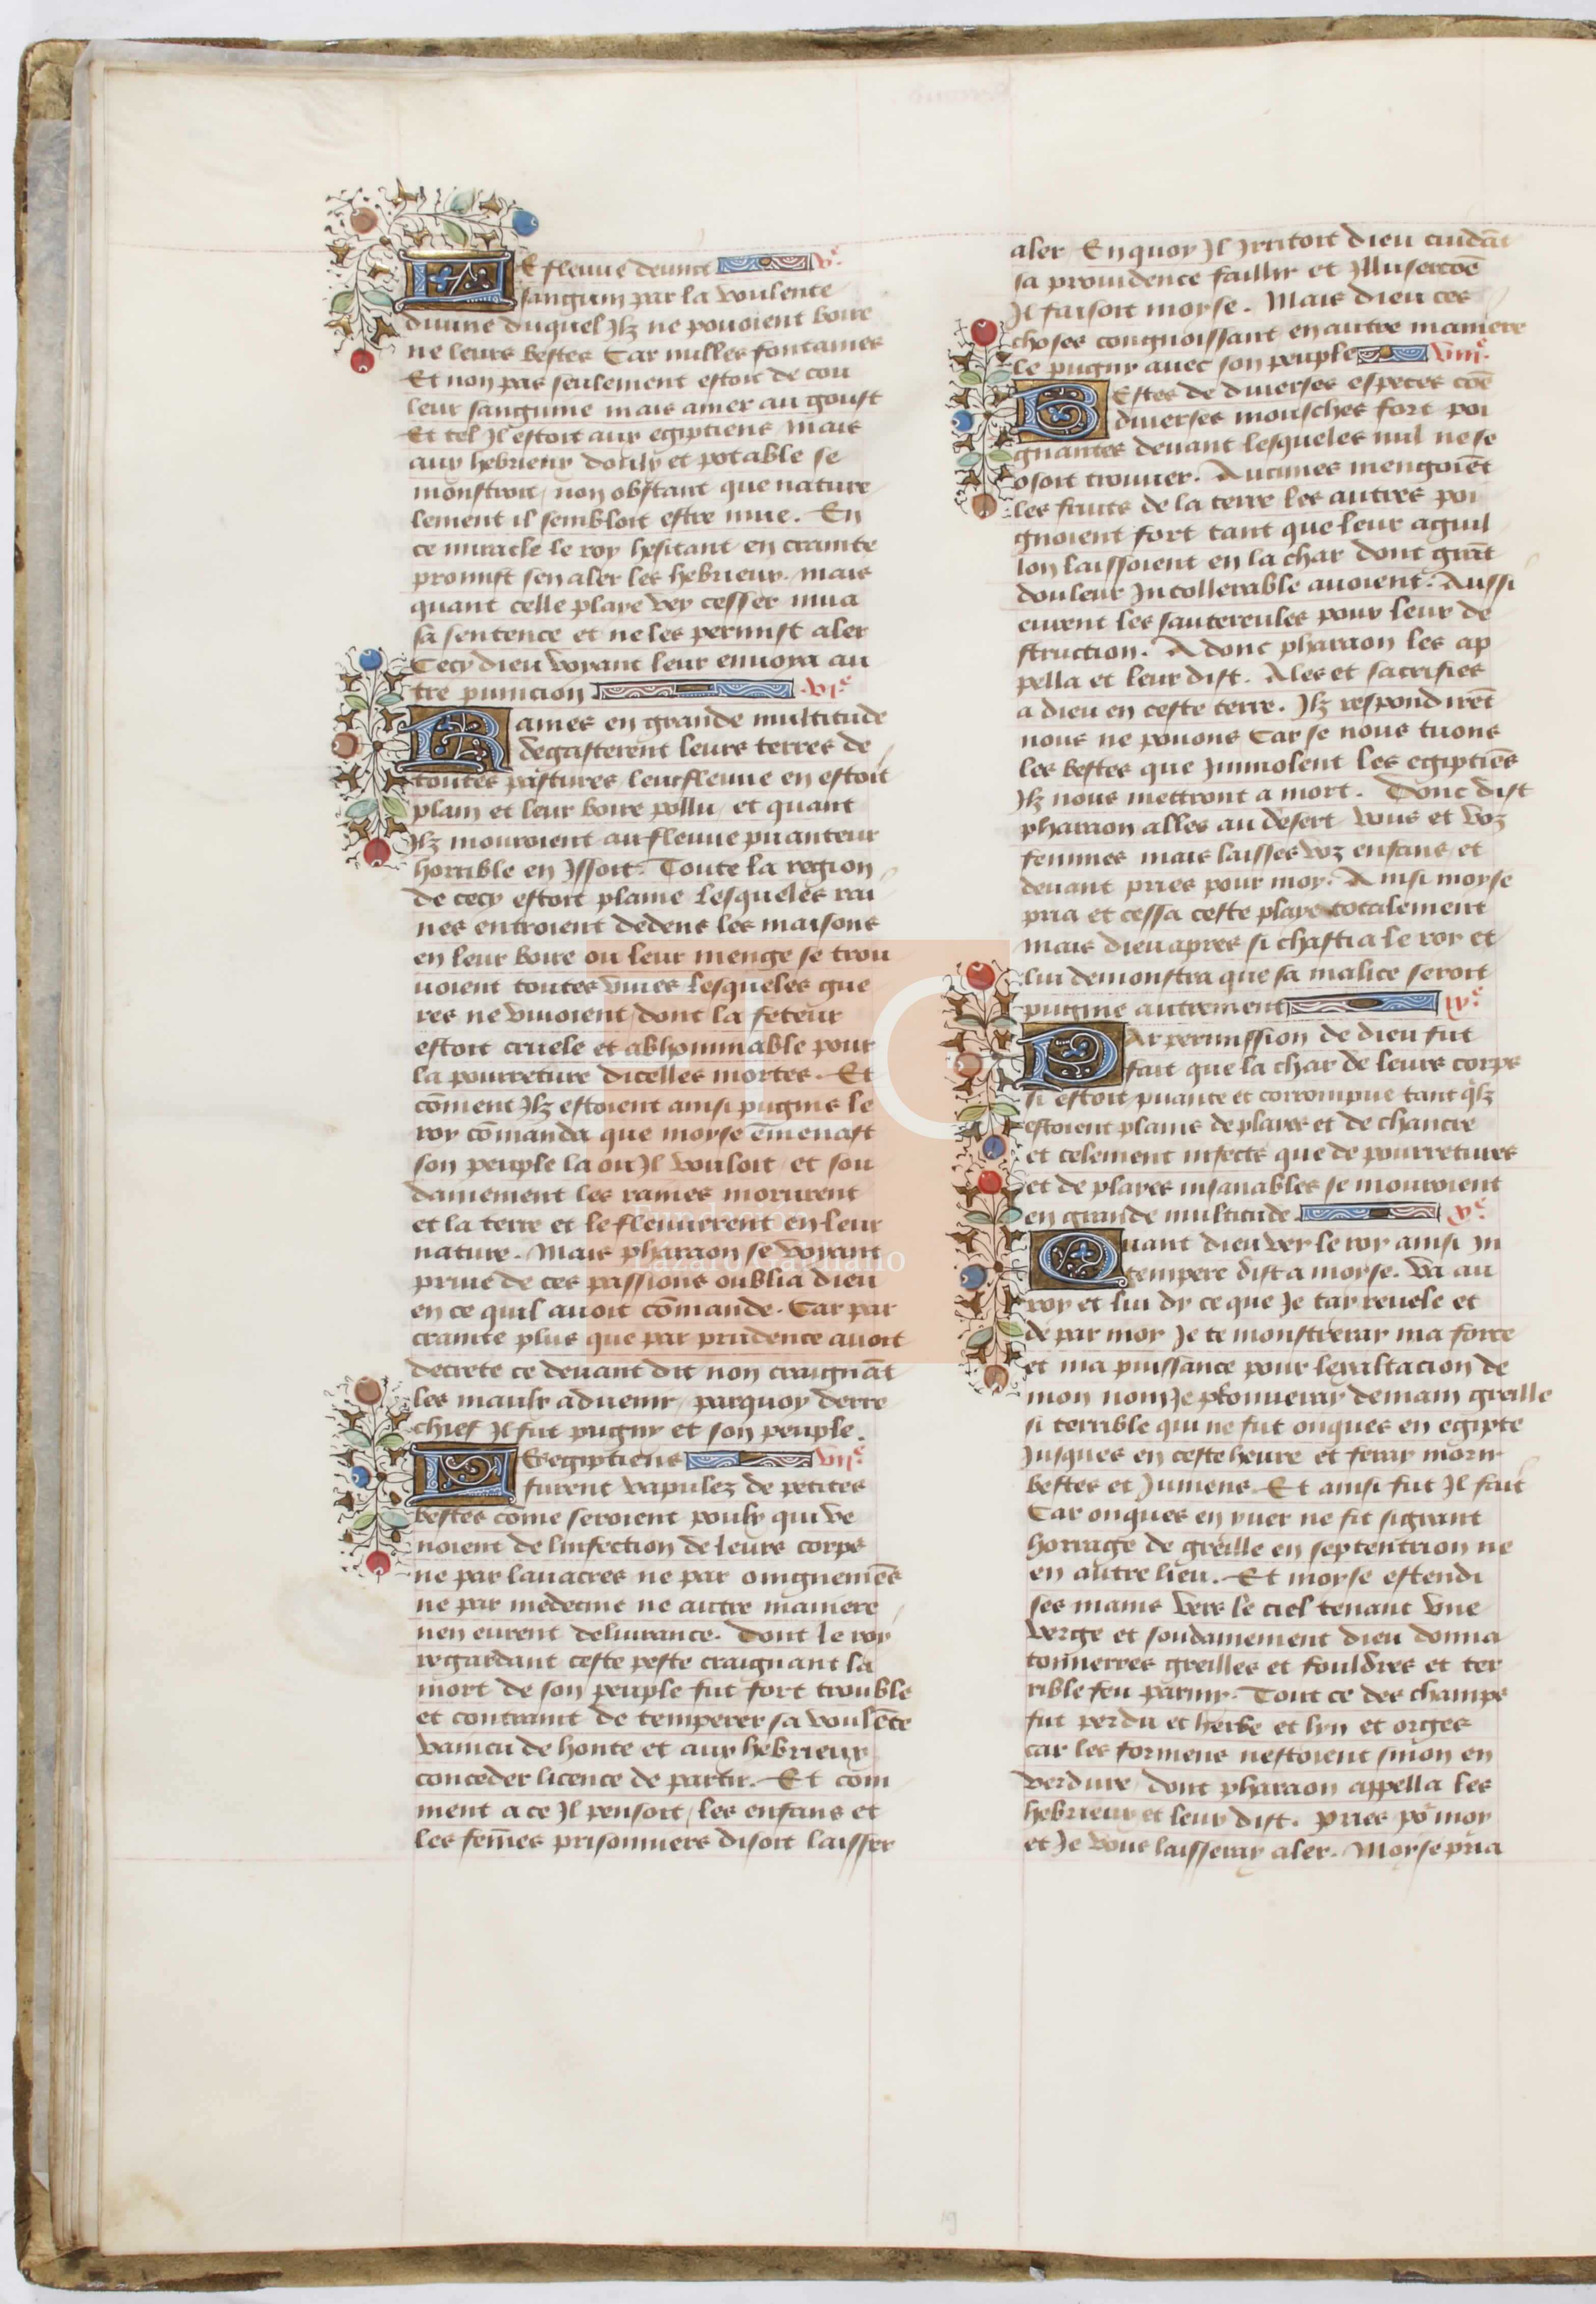 LE fleuue deuint v.e
sanguin par la voulente
diuine duquel Ilz ne pouoient boire
ne leurs bestes Car nulles fontaines
Et non pas seulement estoit de cou
leur sanguine mais amer au goust
Et tel Il estoit aux egiptiens mais
aux hebrieux doulx et potable se
monstroit non obstant que nature
lement il sembloit estre mue. En
ce miracle le roy hesitant en crainte
promist sen aler les hebrieux. mais
quant celle playe vey cesser mua
sa sentence et ne les permist aler
Cecy dieu voyant leur enuoya au
tre punicion vi.e
Raines en grande multitude
degasterent leurs terres de
toutes pastures leur fleuue en estoit
plain et leur boire pollu et quant
Ilz mouroient au fleuue puanteur
horrible en Issoit. Toute la region
de cecy estoit plaine lesqueles rai
nes entroient dedens les maisons
en leur boire ou leur menge se trou
uoient toutes viues lesqueles gue
res ne viuoient dont la feteur
estoit cruele et abhominable pour
la pourreture dicelles mortes. Et
cōment Ilz estoient ainsi pugnis le
roy cōmanda que moyse ēmenast
son peuple la ou Il vouloit et sou
dainement les raines morurent
et la terre et le fleuue revert en leur
nature. Mais pharaon se voyant
priue de ces passions oublia dieu
en ce quil auoit cōmande. Car par
crainte plus que par prudence auoit
decrete ce deuant dit non craignāt
les maulx aduenir parquoy derre
chief Il fut pugny et son peuple.
Les egiptiens vii.e
furent vapulez de petites
bestes come seroient poulx qui ve
noient de linfection de leurs corps
ne par lauacres ne par oingnemēs
ne par medecine ne autre maniere
nen eurent deliurance. Dont le roy
regardant ceste peste craignant la
mort de son peuple fut fort trouble
et contraint de temperer sa voulēte
vaincu de honte et aux hebrieux
conceder licence de partir. Et com
ment a ce Il pensoit les enfans et
les femēs prisonniers disoit laisser
aler En quoy Il Irritoit dieu cuidāt
sa prouidence faillir et Illuser cōē
Il faisoit moyse. Mais dieu ces
choses congnoissant en autre maniere
le pugny auec son peuple viii.e
Bestes de diuerses especes cōē
diuerses mousches fort poi
gnantes deuant lesqueles nul ne se
osoit trouuer. Aucunes mengoiēt
les fruits de la terre les autres poi
gnoient fort tant que leur aguil
lon laissoient en la char dont grāt
douleur Intollerable auoient. Aussi
eurent les sautereules pour leur de
struction. Adonc pharaon les ap
pella et leur dist. Ales et sacrifies
a dieu en ceste terre. Ilz respondirēt
nous ne pouons Car se nous tuons
les bestes que Immolent les egiptiēs
Ilz nous mettront a mort. Donc dist
pharaon alles au desert vous et voz
femmes mais laisses voz enfans et
deuant pries pour moy. Ainsi moyse
pria et cessa ceste playe totalement
mais dieu apres si chastia le roy et
lui demonstra que sa malice seroit
pugnie autrement ix.e
Par permission de dieu fut
fait que la char de leurs corps
si estoit puante et corrompue tant q̄lz
estoient plains de playes et de chancre
et telement infects que de pourretures
et de playes insanables se mouroient
en grande multitude. x.e
Quant dieu vey le roy ainsi In
tempere dist a moyse. Va au
roy et lui dy ce que Je tay reuele et
de par moy Je te monstreray ma force
et ma puissance pour lexaltacion de
mon nom Je plouueray demain greille
si terrible qui ne fut onques en egipte
Jusques en ceste heure et feray morir
bestes et Jumens. Et ainsi fut Il fait
Car onques en yuer ne fit si grant
horrage de greille en septentrion ne
en autre lieu. Et moyse estendi
ses mains vers le ciel tenant vne
verge et soudainement dieu donna
tonnerres greilles et fouldres et ter
rible feu parmy. Tout ce des champs
fut perdu et herbe et lyn et orges
car les formens nestoient sinon en
verdure dont pharaon appella les
hebrieux et leur dist. Pries po moy
et Je vous laisseray aler. Moyse pria
Fundación
Lázaro Galdiano